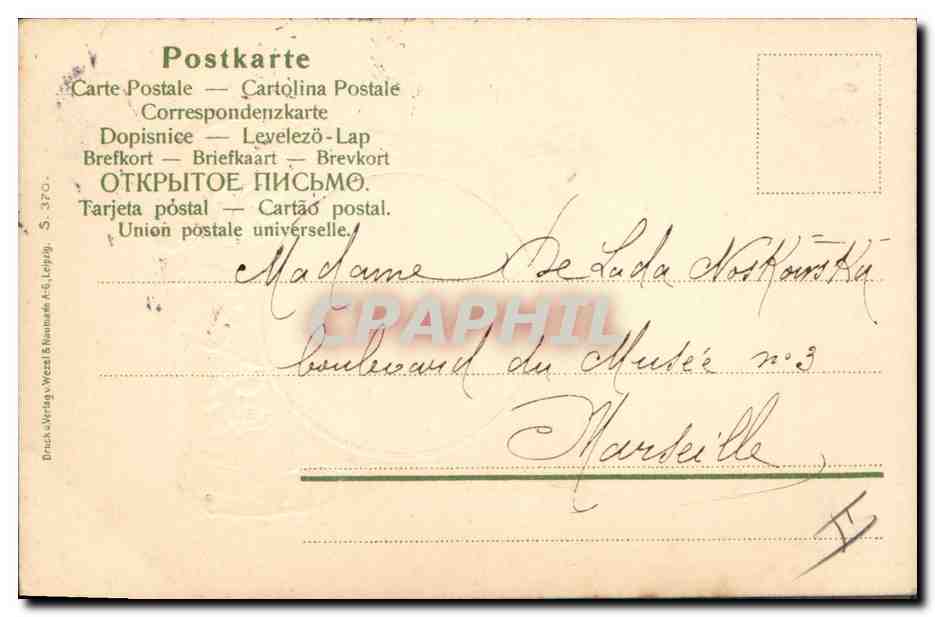 Postkarte
Carte Postale — Cartolina Postale
Correspondenzkarte
Dopisnice — Levelező-Lap
Brefkort — Briefkaart — Brevkort
ОТКРЫТОЕ ПИСЬМО.
Tarjeta póstal — Cartão postal.
Union postale universelle.
Druck u. Verlag v. Wezel & Naumann A-G, Leipzig. S. 370.
Madame De Lada Noskowska
CPAPHIL
boulevard du Musée n° 3
Marseille